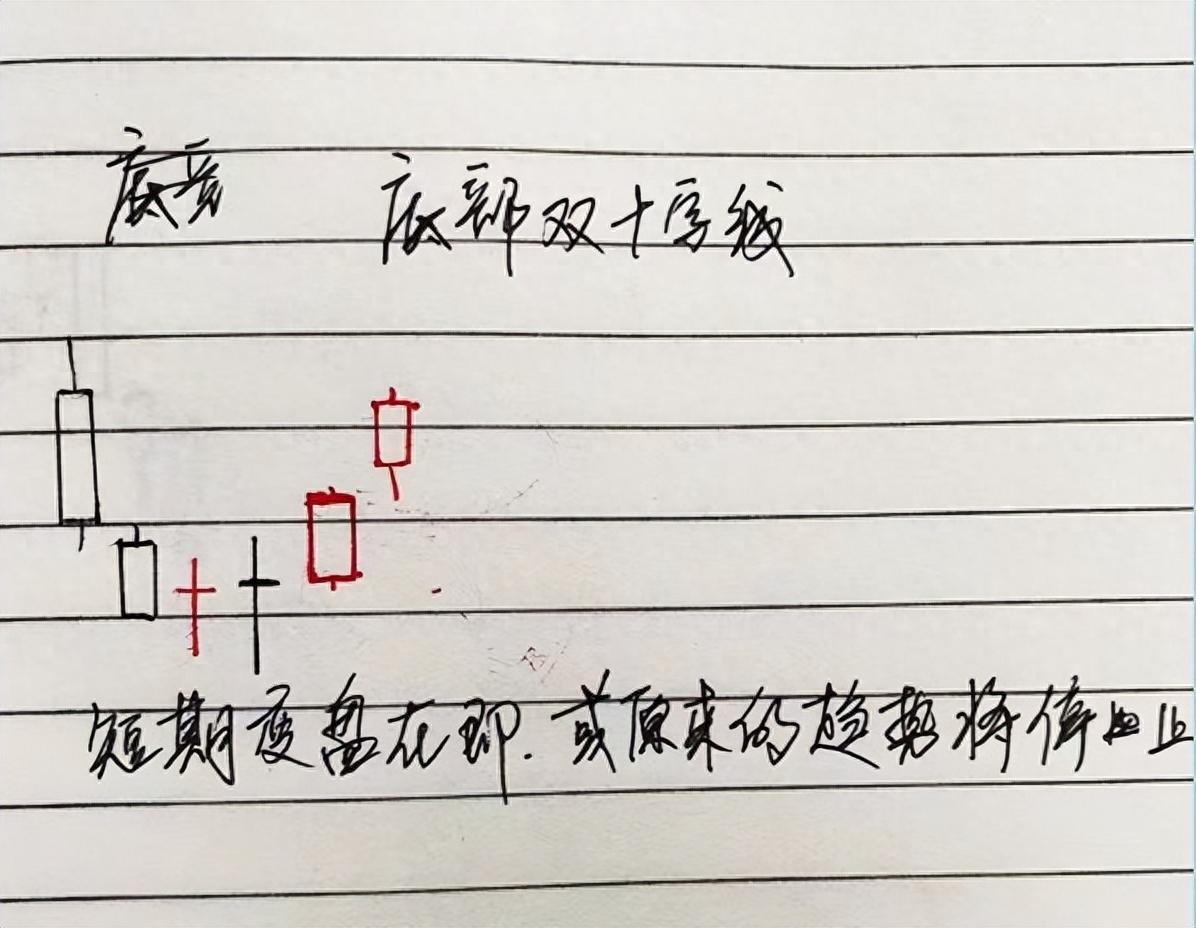 底部双十字线
短期变盘在即.或原来的趋势将停止